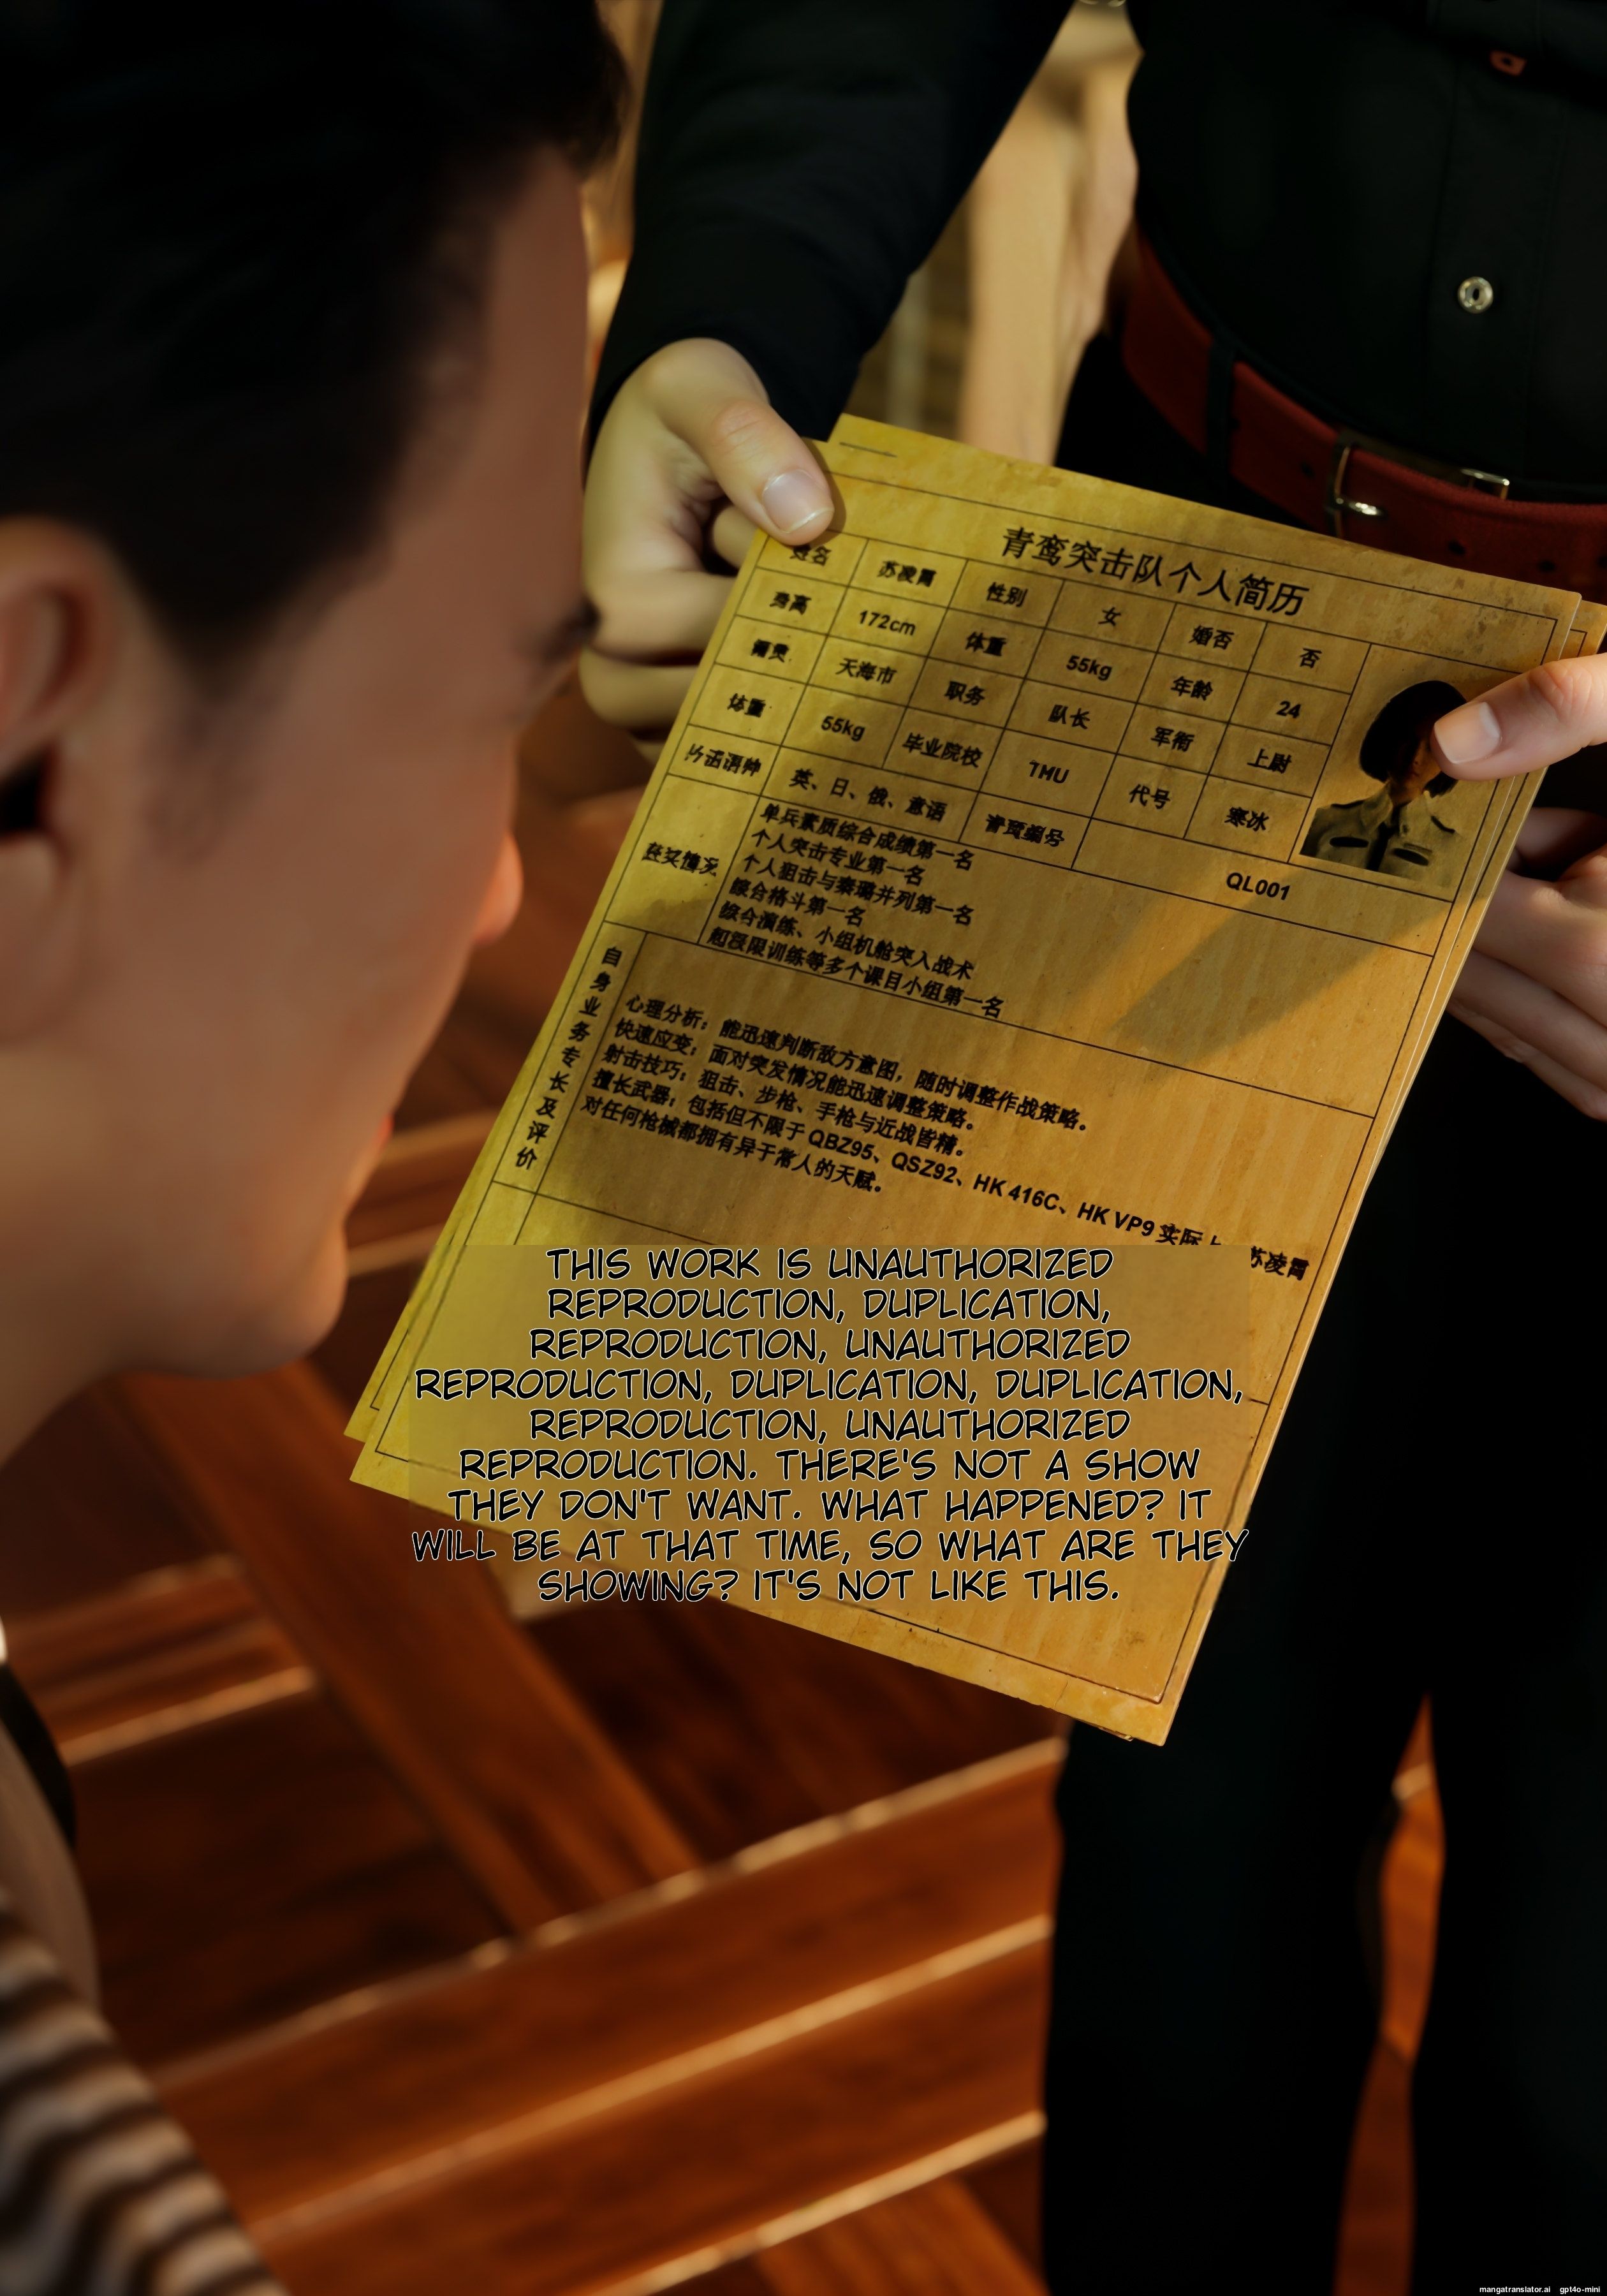 青鸾突击队个人简历
姓名 苏凌霄 性别 女 婚否 否
身高 172cm 体重 55kg 年龄 24
天海市 职务 队长 军衔 上尉
体重 55kg 毕业院校 TMU 代号 寒冰
英、日、俄、意语 QL001
单兵素质综合成绩第一名
个人突击专业第一名
个人狙击与秦璐并列第一名
综合格斗第一名
综合演练、小组机舱突入战术
超极限训练等多个课目小组第一名
自身业务专长及评价
心理分析：能迅速判断敌方意图，随时调整作战策略。
快速应变：面对突发情况能迅速调整策略。
射击技巧：狙击、步枪、手枪与近战皆精。
擅长武器：包括但不限于 QBZ95、QSZ92、HK 416C、HK VP9 实际上 苏凌霄
对任何枪械都拥有异于常人的天赋。
THIS WORK IS UNAUTHORIZED
REPRODUCTION, DUPLICATION,
REPRODUCTION, UNAUTHORIZED
REPRODUCTION, DUPLICATION, DUPLICATION,
REPRODUCTION, UNAUTHORIZED
REPRODUCTION. THERE'S NOT A SHOW
THEY DON'T WANT. WHAT HAPPENED? IT
WILL BE AT THAT TIME, SO WHAT ARE THEY
SHOWING? IT'S NOT LIKE THIS.
mangatranslator.ai gpt4o-mini